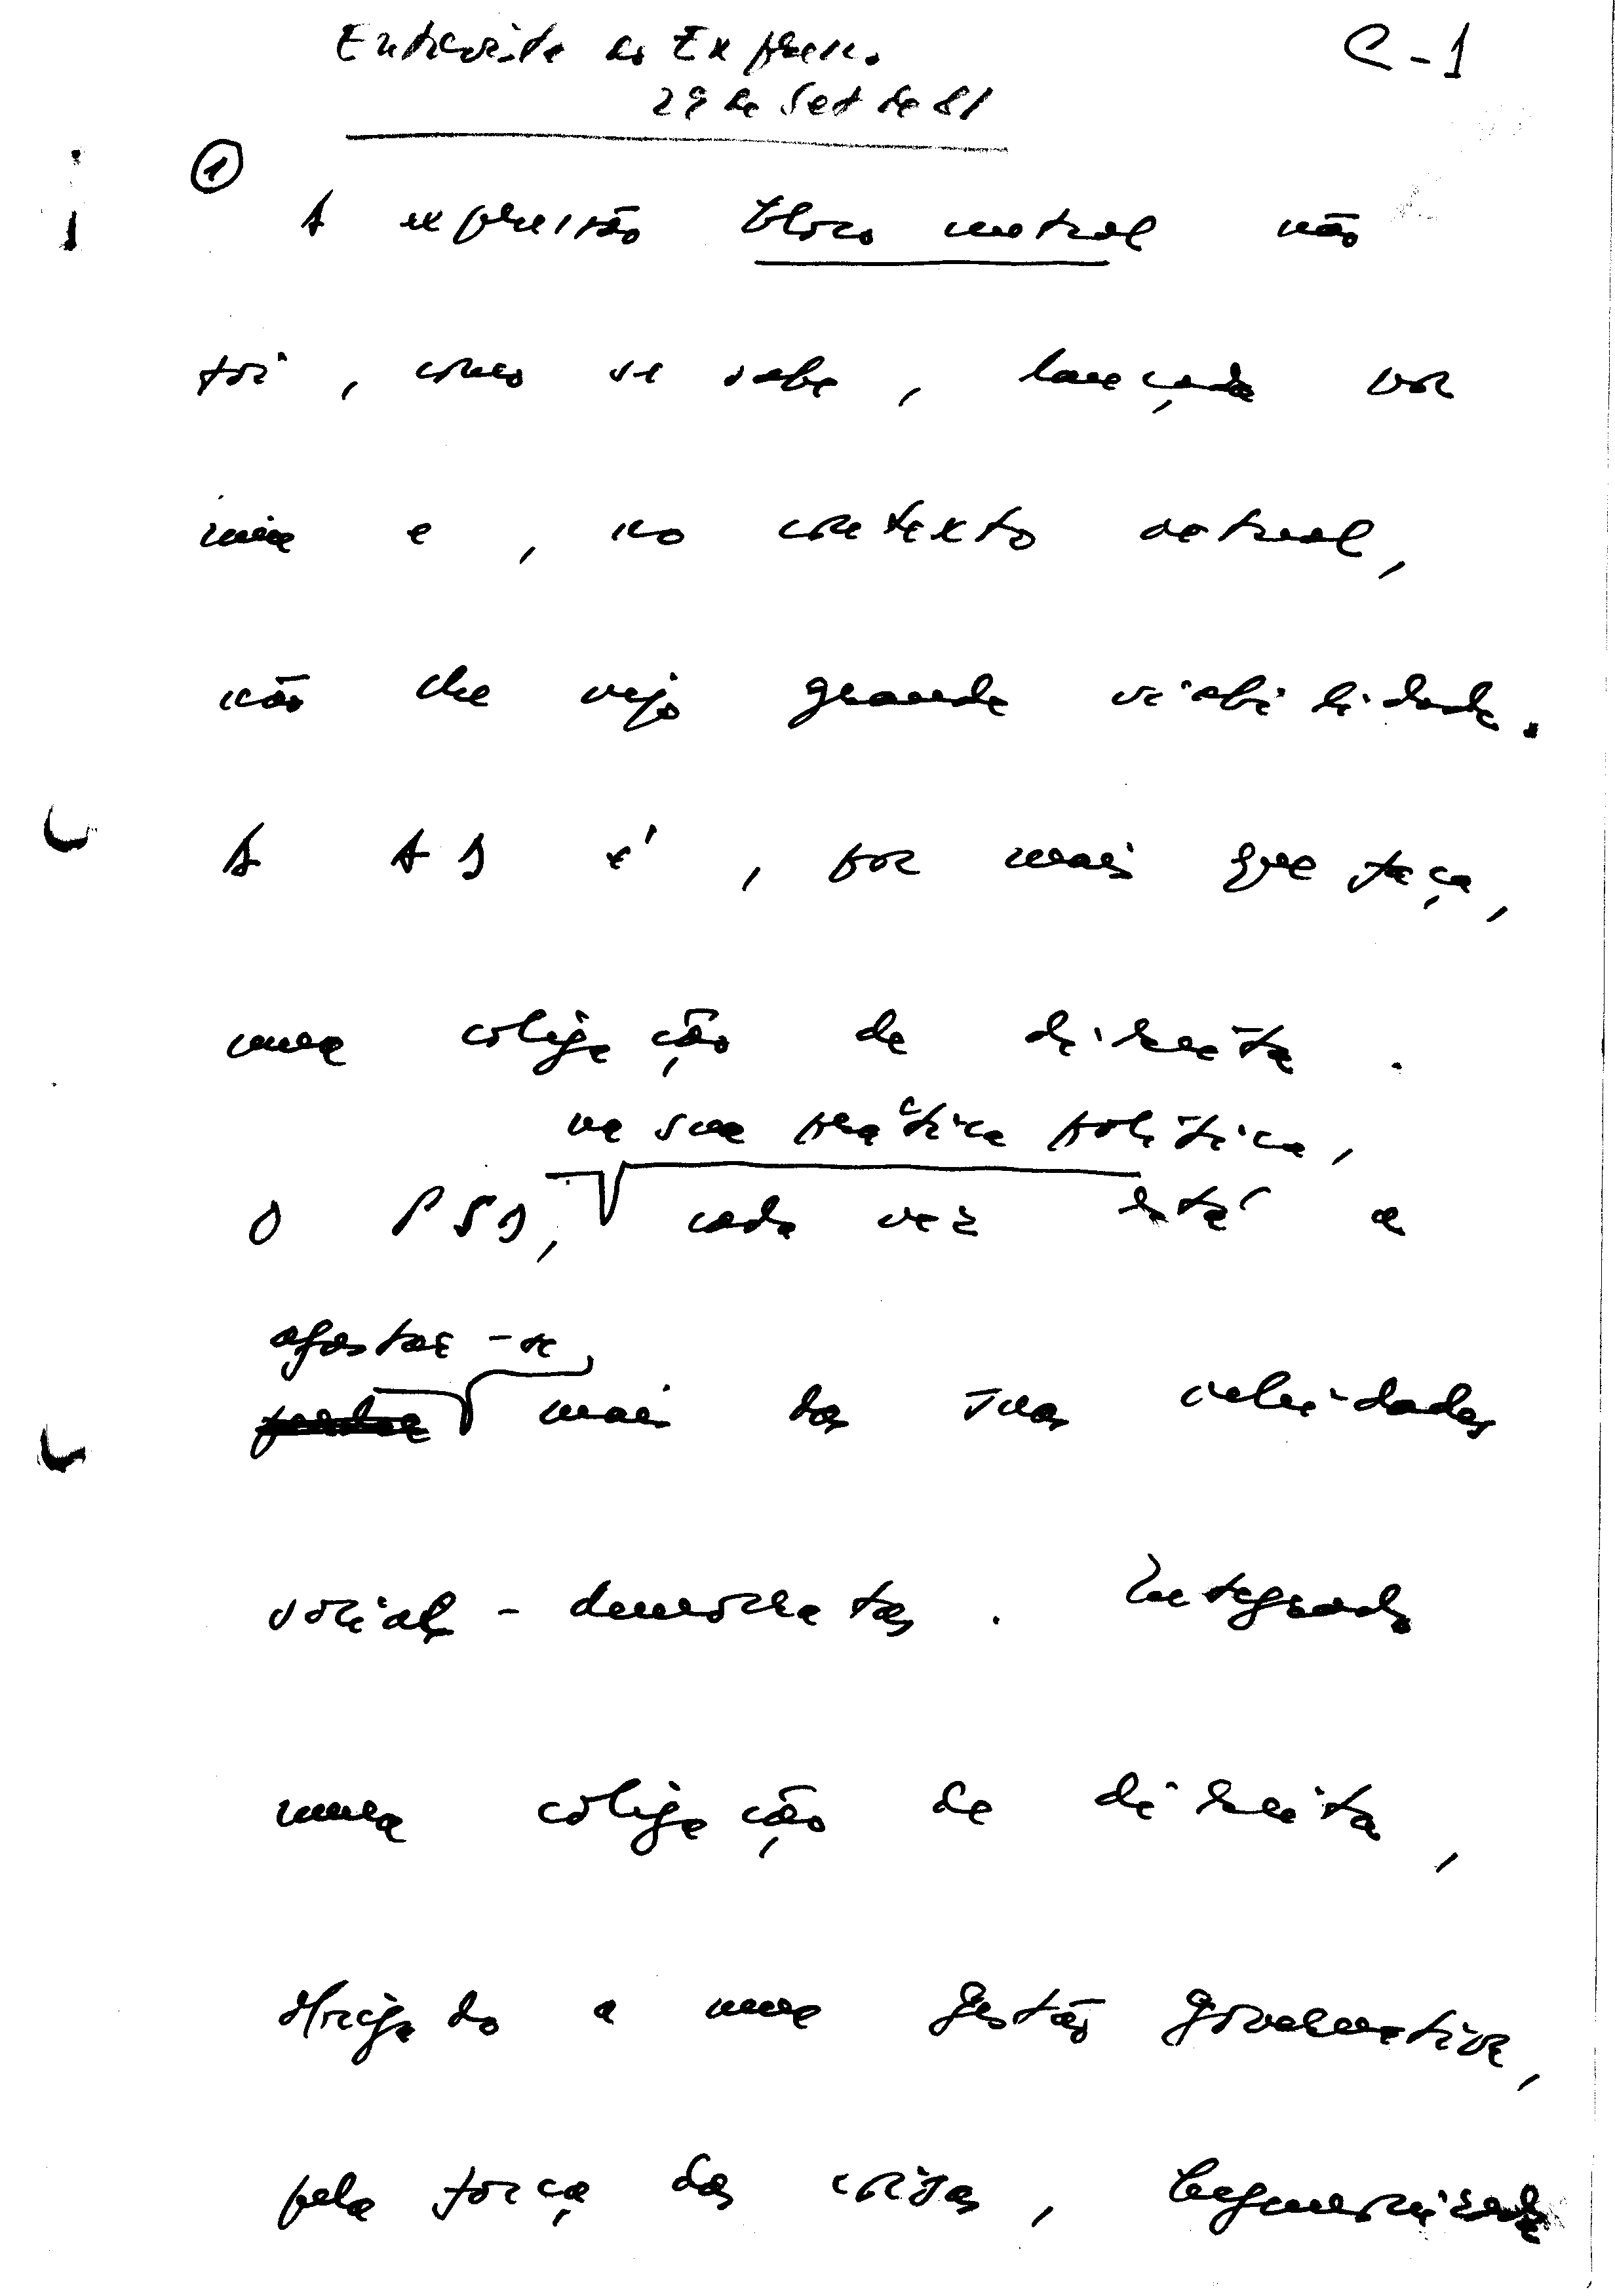 Entrevista ao Expresso
29 de Set de 81
C-1
1
A expressão bloco central não
foi, como se sabe, lançada por
mim e, no contexto actual,
não lhe vejo grande viabilidade.
A AD é, por mais que faça,
uma coligação de direita.
na sua prática política,
O PSD, cada vez está a
afastar-se
perder mais das suas veleidades
sociais-democratas. Integrado
numa coligação de direita,
obrigado a uma gestão governativa,
pela força das coisas, hegemonizada